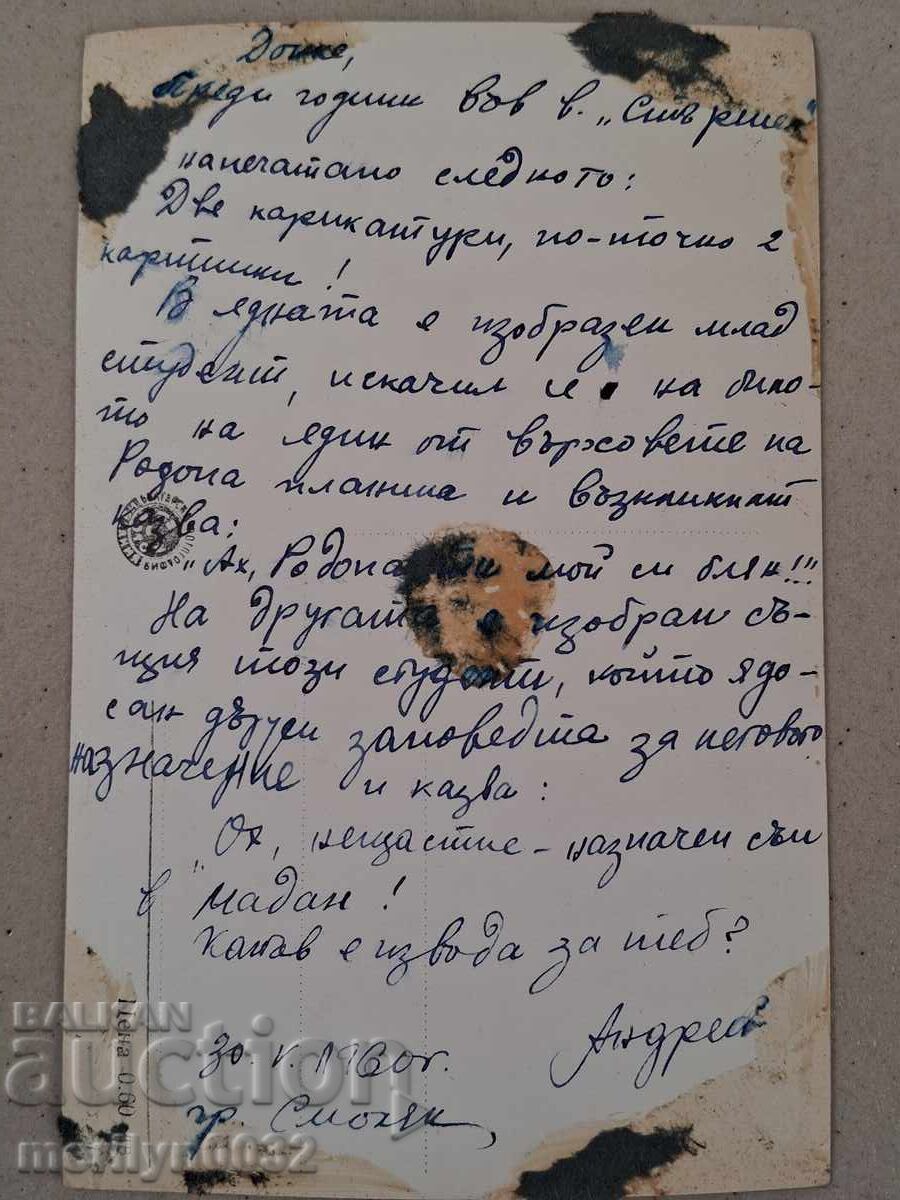 Донке,
Преди години във в. „Стършел"
напечатано следното:
Две карикатури, по-точно 2
картини!
В ядната е изобразен млад
студент, искачил се на било-
то на един от върховете на
Родопа планина и възкликният
казва:
„Ах, Родопа ти мой си блян!!!
На другата е изобран съ-
щия този студент, който ядо-
сан държи заповедта за неговото
назначение и казва:
„Ох, нещастие – назначен съм
в Мадан!
Какъв е извода за теб?
Андрей
30.V.1960г.
гр. Смолян
Цена 0.60
BALKAN
auction
merilyn0032